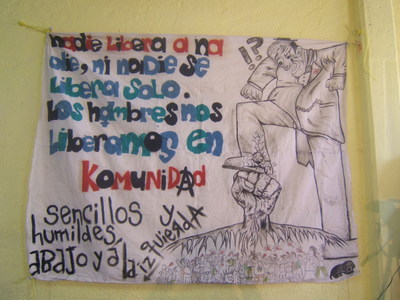 ¡?
nadie libera a na
die, ni nadie se
libera solo.
los hombres nos
liberamos en
KomunidAd
sencillos y
humildes,
abajo y a la izquierda